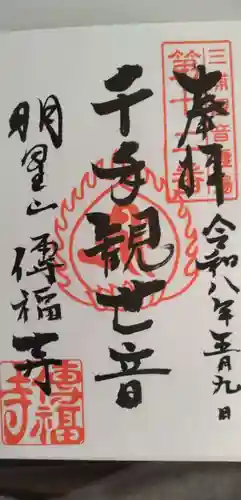 奉拝
令和八年五月九日
三浦観音霊場
第十一番
千手観世音
明星山 傳福寺
傳福寺